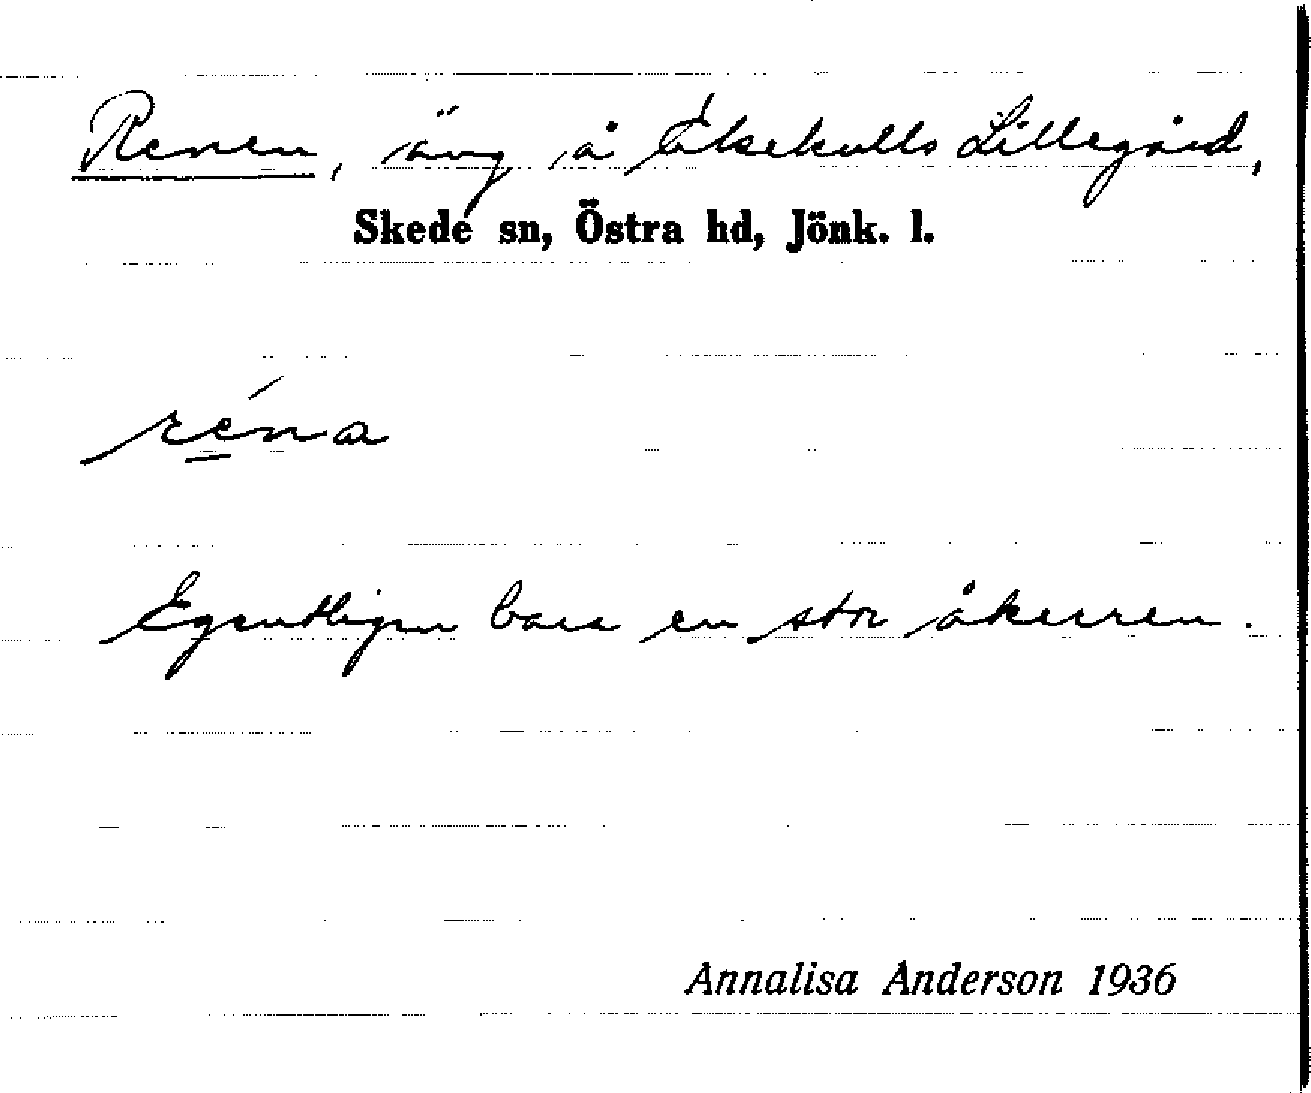 Renen, äng å Ekekulls Lillegård,
Skede sn, Östra hd, Jönk. l.
réna
Egentligen bara en stor åkerren.
Annalisa Anderson 1936